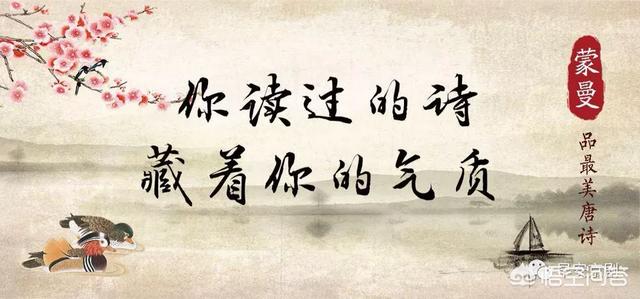 你读过的诗
藏着你的气质
蒙曼
品最美唐诗
悟空问答